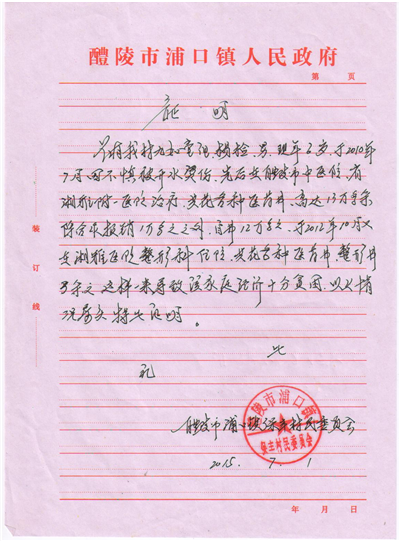 醴陵市浦口镇人民政府
第 页
证 明
现年2岁,于2010年
7月因不慎被开水烫伤,先后在醴陵市中医院、省
湘雅附一医院治疗,共花各种医药费,高达13万多元
除合作报销1万多元之外,自费12万多元,于2012年10月又
在湘雅医院整形科住院,共花各种医药费、整形费
多元,这样一来导致该家庭经济十分贫困,以上情
况属实,特此证明。
此
醴陵市浦口镇保丰村民委员会
2015. 7. 1
醴陵市浦口镇
村民委员会
装订线
年 月 日